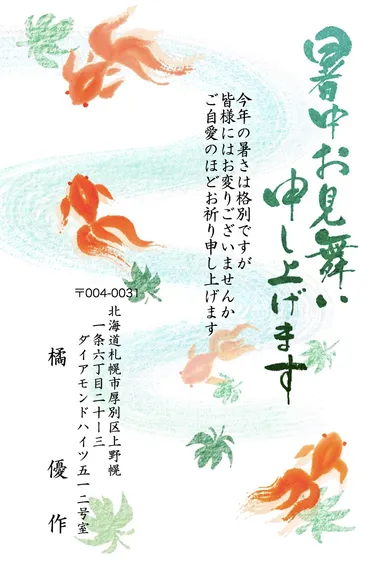 暑中お見舞い
申し上げます
今年の暑さは格別ですが
皆様にはお変りございませんか
ご自愛のほどお祈り申し上げます
〒004-0031
北海道札幌市厚別区上野幌
一条六丁目二十ー三
ダイアモンドハイツ五一二号室
橘 優作